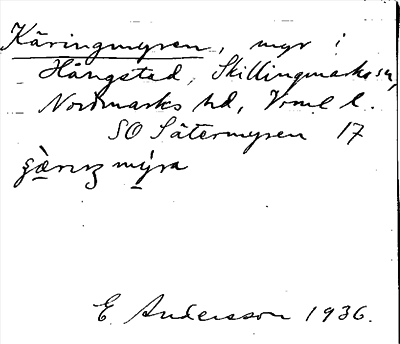 Käringmyren, myr i
Hängstad, Skillingmarks sn,
Nordmarks hd, Vrml l.
SO Sätermyren 17
myra
E. Andersson 1936.